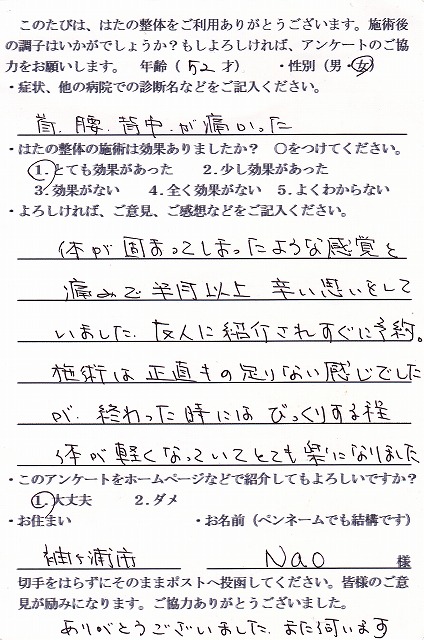 このたびは、はたの整体をご利用ありがとうございます。施術後
の調子はいかがでしょうか？もしよろしければ、アンケートのご協
力をお願いします。　年齢（ 52 才）　・性別（男・女）
・症状、他の病院での診断名などをご記入ください。
首、腰、背中が痛かった
・はたの整体の施術は効果ありましたか？　〇をつけてください。
1.とても効果があった　2.少し効果があった
3.効果がない　4.全く効果がない　5.よくわからない
・よろしければ、ご意見、ご感想などをご記入ください。
体が固まってしまったような感覚と
痛みで半月以上 辛い思いをして
いました。友人に紹介されすぐに予約。
施術は正直もの足りない感じでした
が、終わった時にはびっくりする程
体が軽くなっていてとても楽になりました
・このアンケートをホームページなどで紹介してもよろしいですか？
1.大丈夫　2.ダメ
・お住まい　・お名前（ペンネームでも結構です）
袖ヶ浦市　Nao　様
切手をはらずにそのままポストへ投函してください。皆様のご意
見が励みになります。ご協力ありがとうございました。
ありがとうございました。また伺います